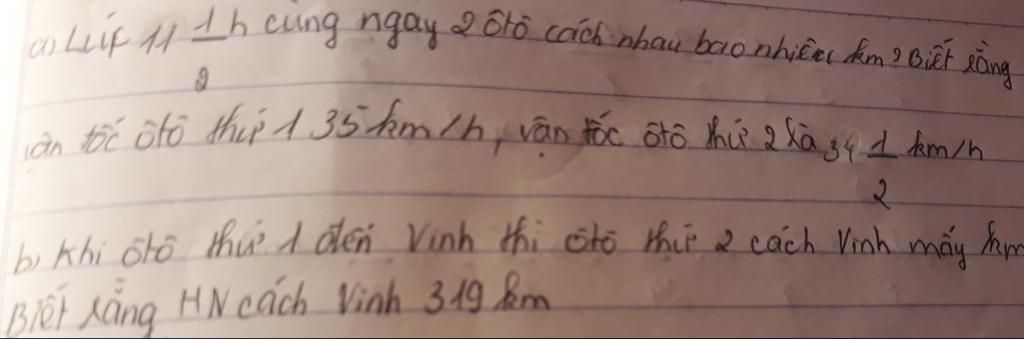 a) Lúc 11 1/2 h cùng ngày 2 ôtô cách nhau bao nhiêu km? Biết rằng
vận tốc ôtô thứ 1 35 km/h, vận tốc ôtô thứ 2 là 34 1/2 km/h
b, Khi ôtô thứ 1 đến Vinh thì ôtô thứ 2 cách Vinh mấy km
Biết rằng HN cách Vinh 319 km